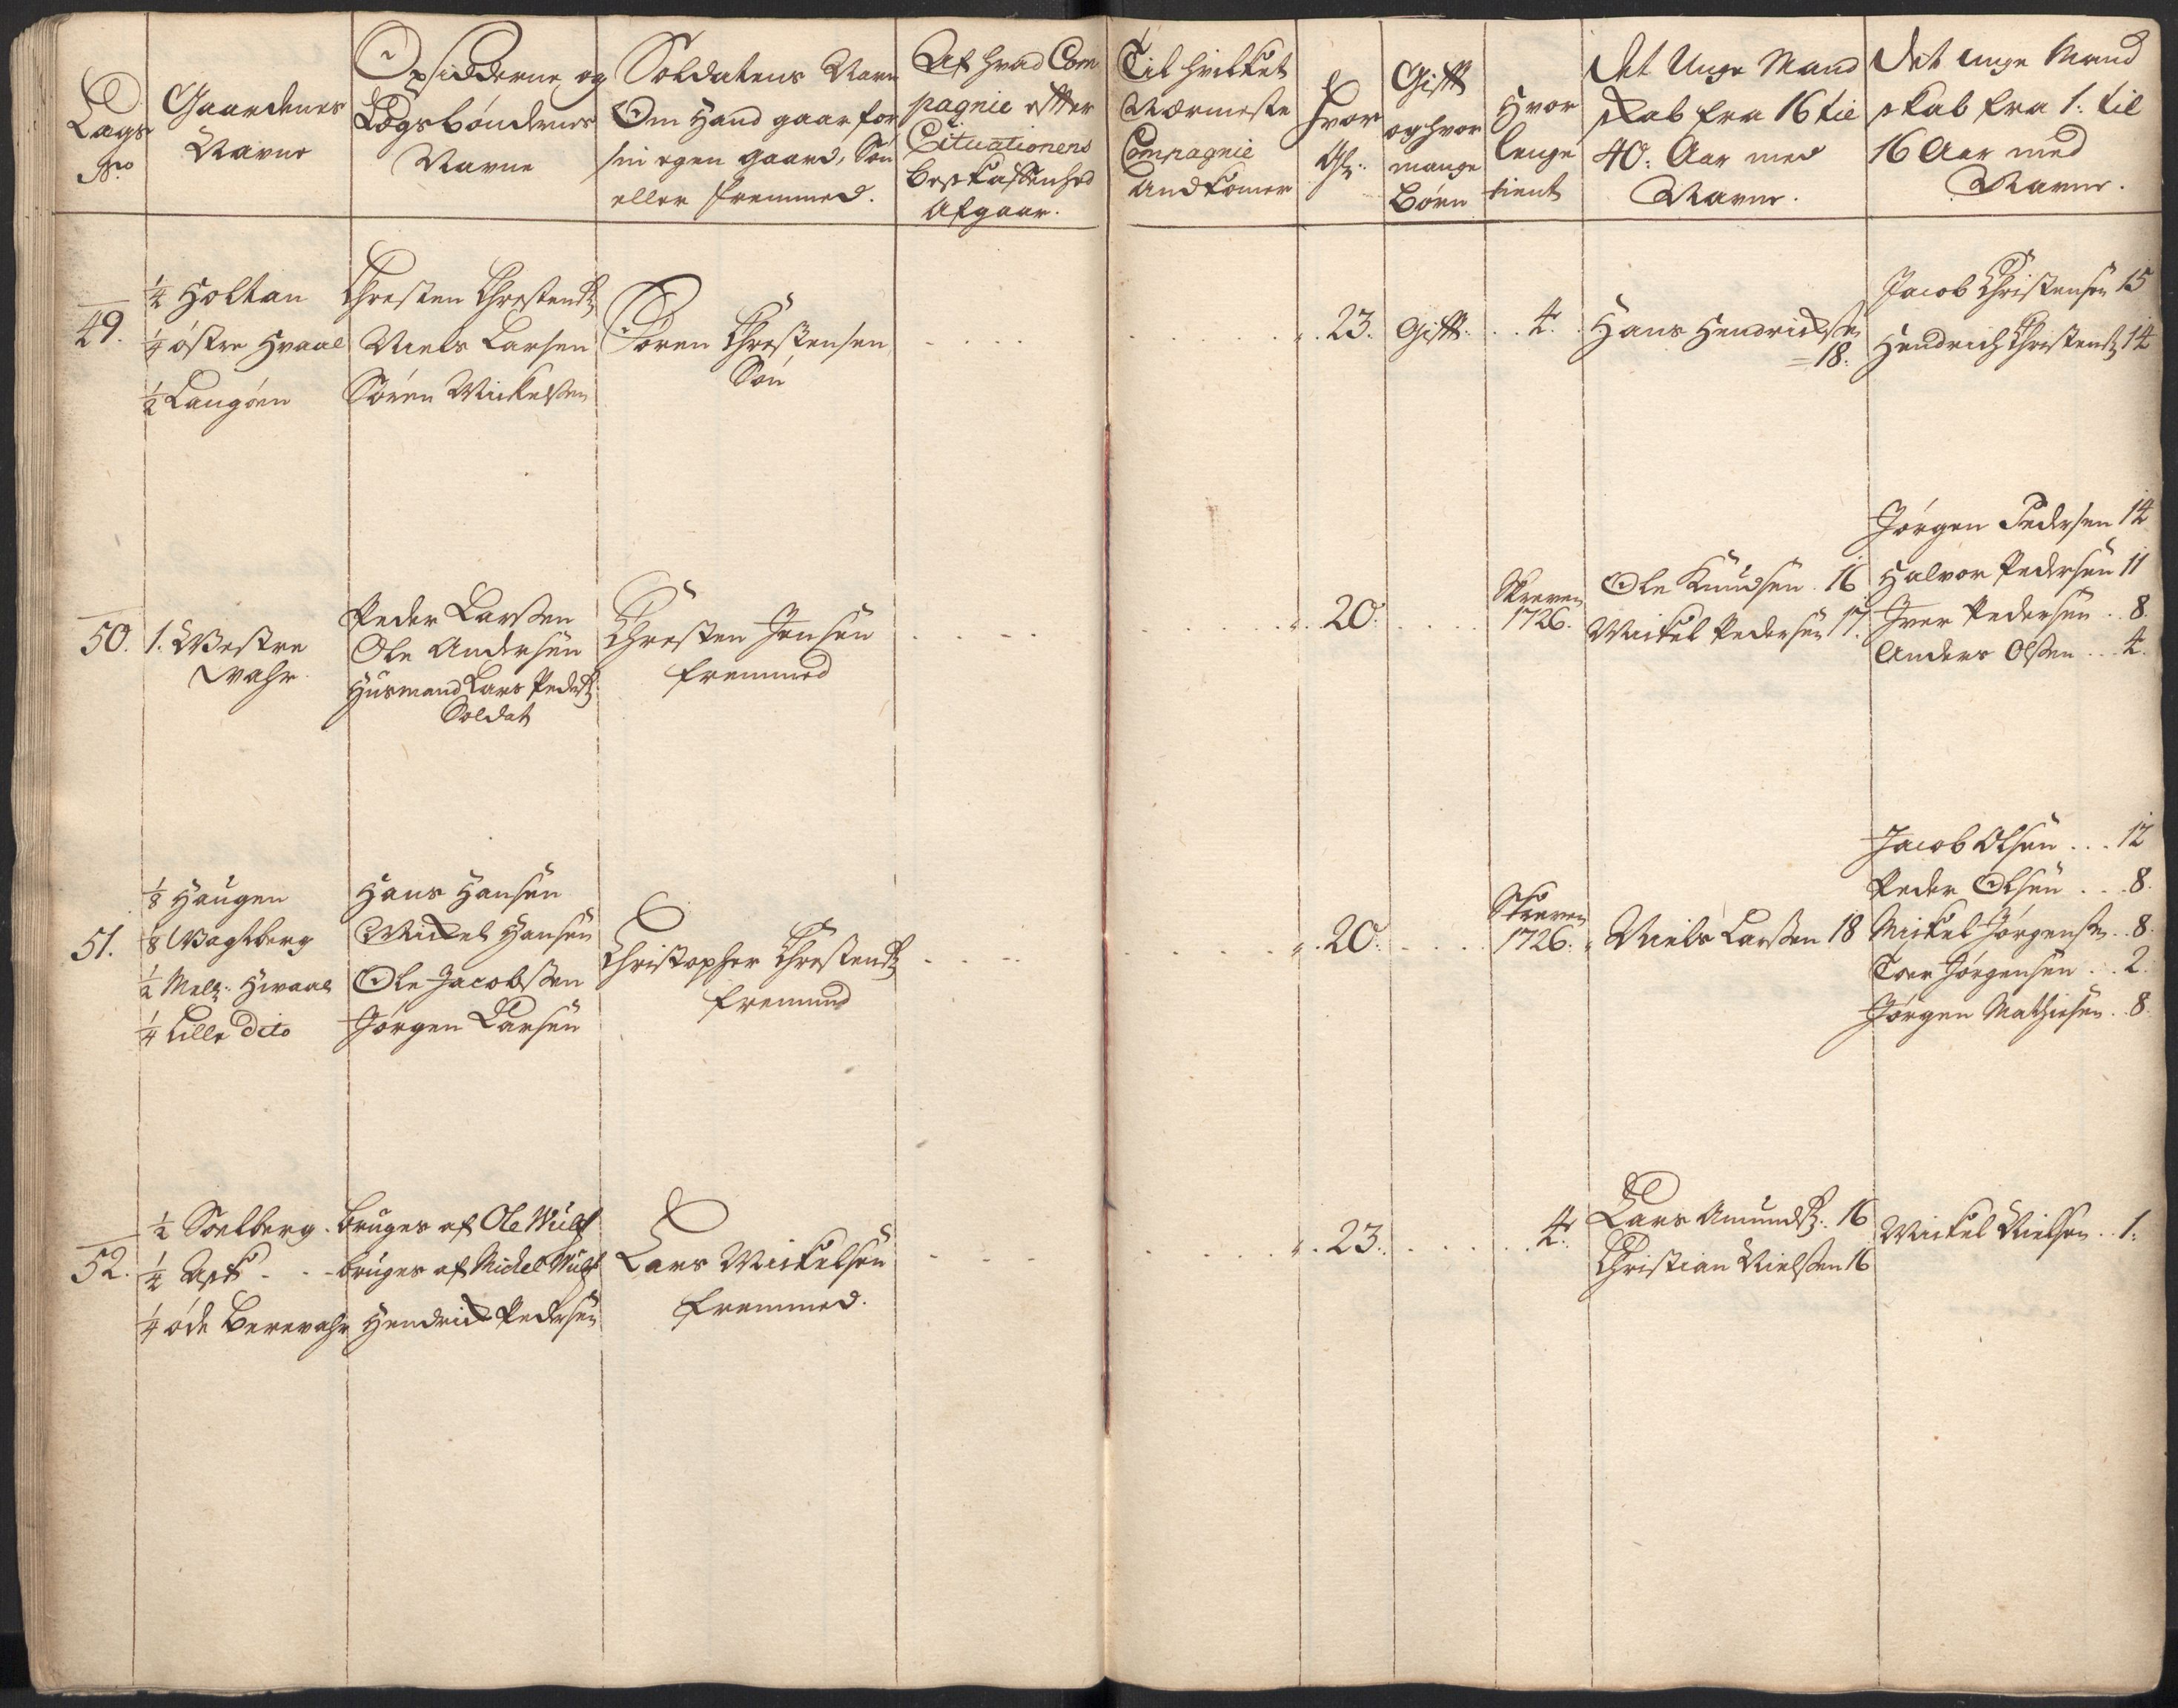 Lags
No
Gaardenes
Navne
Opsidderne og
Lægsbøndernes
Navne
Soldatens Navn
Om Hand gaar for
sin egen gaard, Søn
eller fremmed.
Af hvad Com
pagnie efter
Cituationens
beskaffenhed
Afgaar.
Til hvilket
Nærmeste
Compagnie
Andkomer
Hvor
Gl:
Gifft
og hvor
mange
børn
Hvor
lenge
tient
Det Unge Mand
skab fra 16 til
40: Aar med
Navne.
Det unge Mand
skab fra 1: til
16 Aar med
Navne.
49.
1/4 Holtan
1/4 østre Hvaal
1/2 Langøen
Chresten Chrestens:
Niels Larsen
Sören Mickelsen
Sören Chrestensen
Søn
23.
Gifft.
4.
Hans Hendrichsen
18.
Jacob Christensen 15
Hendrich Christens: 14
50.
1. Westre
Wahr
Peder Larsen
Ole Andersen
Husmand Lars Peders:
Soldat
Chresten Jensen
fremmed
20.
Skreven
1726.
Ole Knudsen. 16
Mickel Pedersen 17.
Jørgen Pedersen 14
Halvor Pedersen 11
Iver Pedersen . 8.
Anders Olsen .. 4.
51.
1/8 Haugen
1/8 Wagtberg
1/2 Mell: Hwaal
1/4 Lille Dito
Hans Hansen
Mickel Hansen
Ole Jacobsen
Jørgen Larsen
Christopher Chrestens:
fremmed
20.
Skreven
1726.
Niels Larsen 18
Jacob Olsen ... 12
Peder Olsen ... 8.
Mickel Jørgensen .. 8.
Toer Jørgensen .. 2.
Jørgen Mathisen .. 8.
52.
1/2 Soelberg .
1/4 Ask . .
1/4 øde Berewahr
bruges af Ole Wulf
bruges af Michel Wulf
Hendrick Pedersen
Lars Mickelsen
fremmed.
23.
4.
Lars Amunds: 16
Christian Nielsen 16
Mickel Nielsen .. 1.